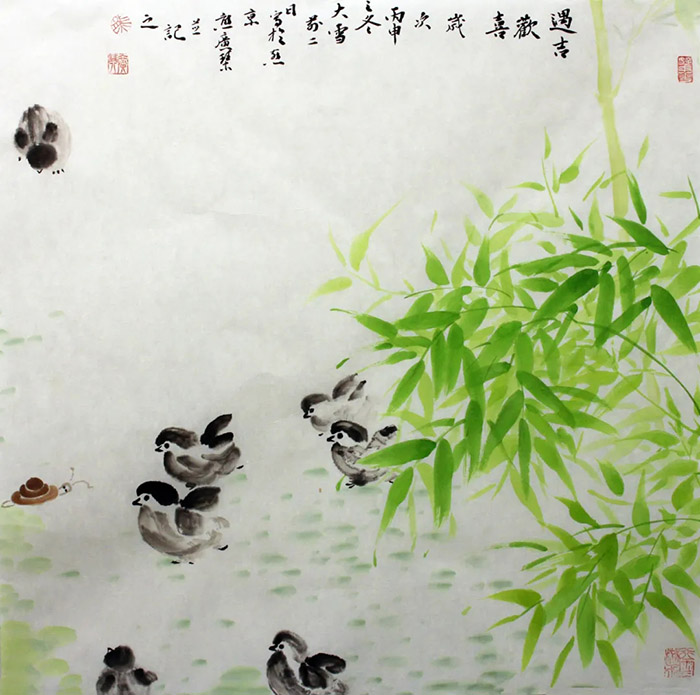 遇吉
歡
喜
歲
次
丙申
之冬
大雪
前二
日
寫於燕
京
熊廣琴
並
記
之